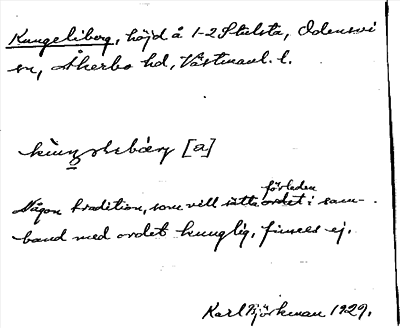 Kungeliberg, höjd å 1-2 Stelsta, Odensvi
sn, Åkerbo hd, Västmanl. l.
[a]
förleden
Någon tradition, som vill sätta ordet i sam-
band med ordet kunglig, finnes ej.
Karl Björkman 1929.